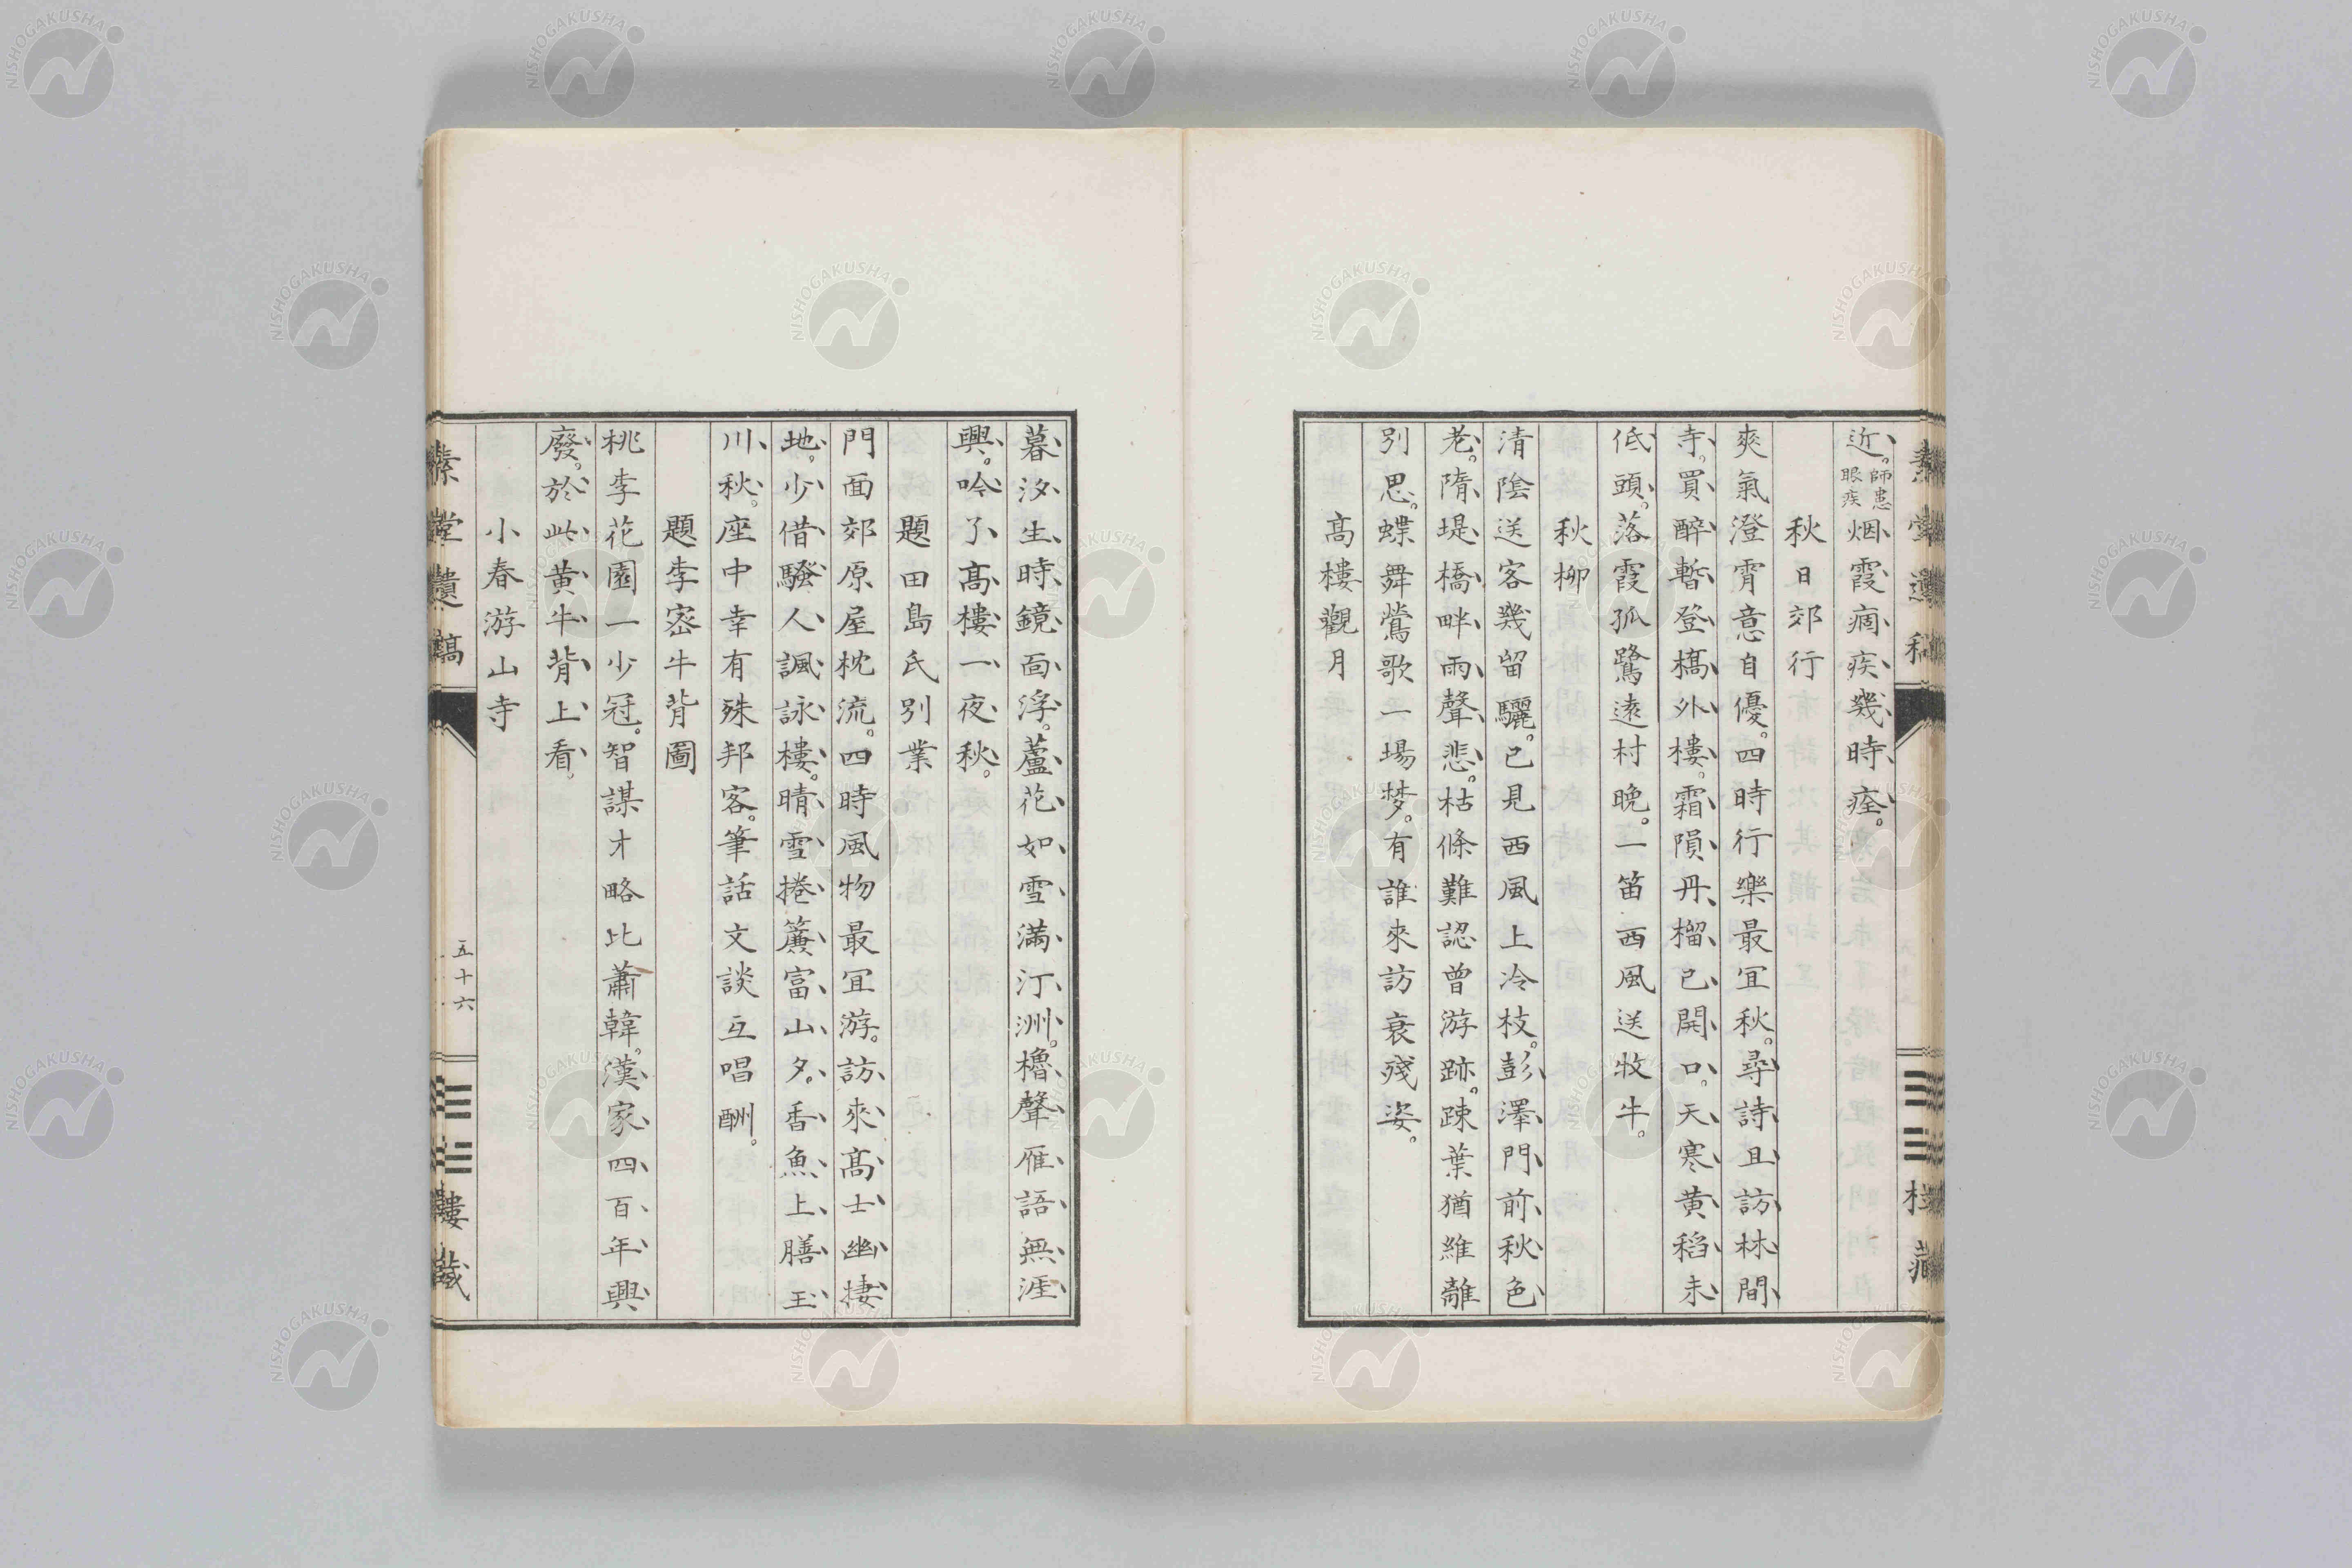 近。師患眼疾烟霞痼疾幾時痊。
秋日郊行
爽氣澄霄意自優。四時行樂最宜秋。尋詩且訪林間
寺。買醉暫登橋外樓。霜隕丹榴已開口。天寒黄稻未
低頭。落霞孤鷺遠村晩。一笛西風送牧牛。
秋柳
清陰送客幾留驪。已見西風上冷枝。彭澤門前秋色
老。隋堤橋畔雨聲悲。枯條難認曾游跡。疎葉猶維離
別思。蝶舞鶯歌一場梦。有誰來訪衰殘姿。
高樓觀月
暮汐生時鏡面浮。蘆花如雪滿汀洲。櫓聲雁語無涯
興。吟了高樓一夜秋。
題田島氏別業
門面郊原屋枕流。四時風物最宜游。訪來高士幽棲
地。少借騷人諷詠樓。晴雪捲簾富山夕。香魚上膳玉
川秋。座中幸有殊邦客。筆話文談互唱酬。
題李密牛背圖
桃李花園一少冠。智謀才略比蕭韓。漢家四百年興
廢。於此黄牛背上看。
小春游山寺
五十六
NISHOGAKUSHA